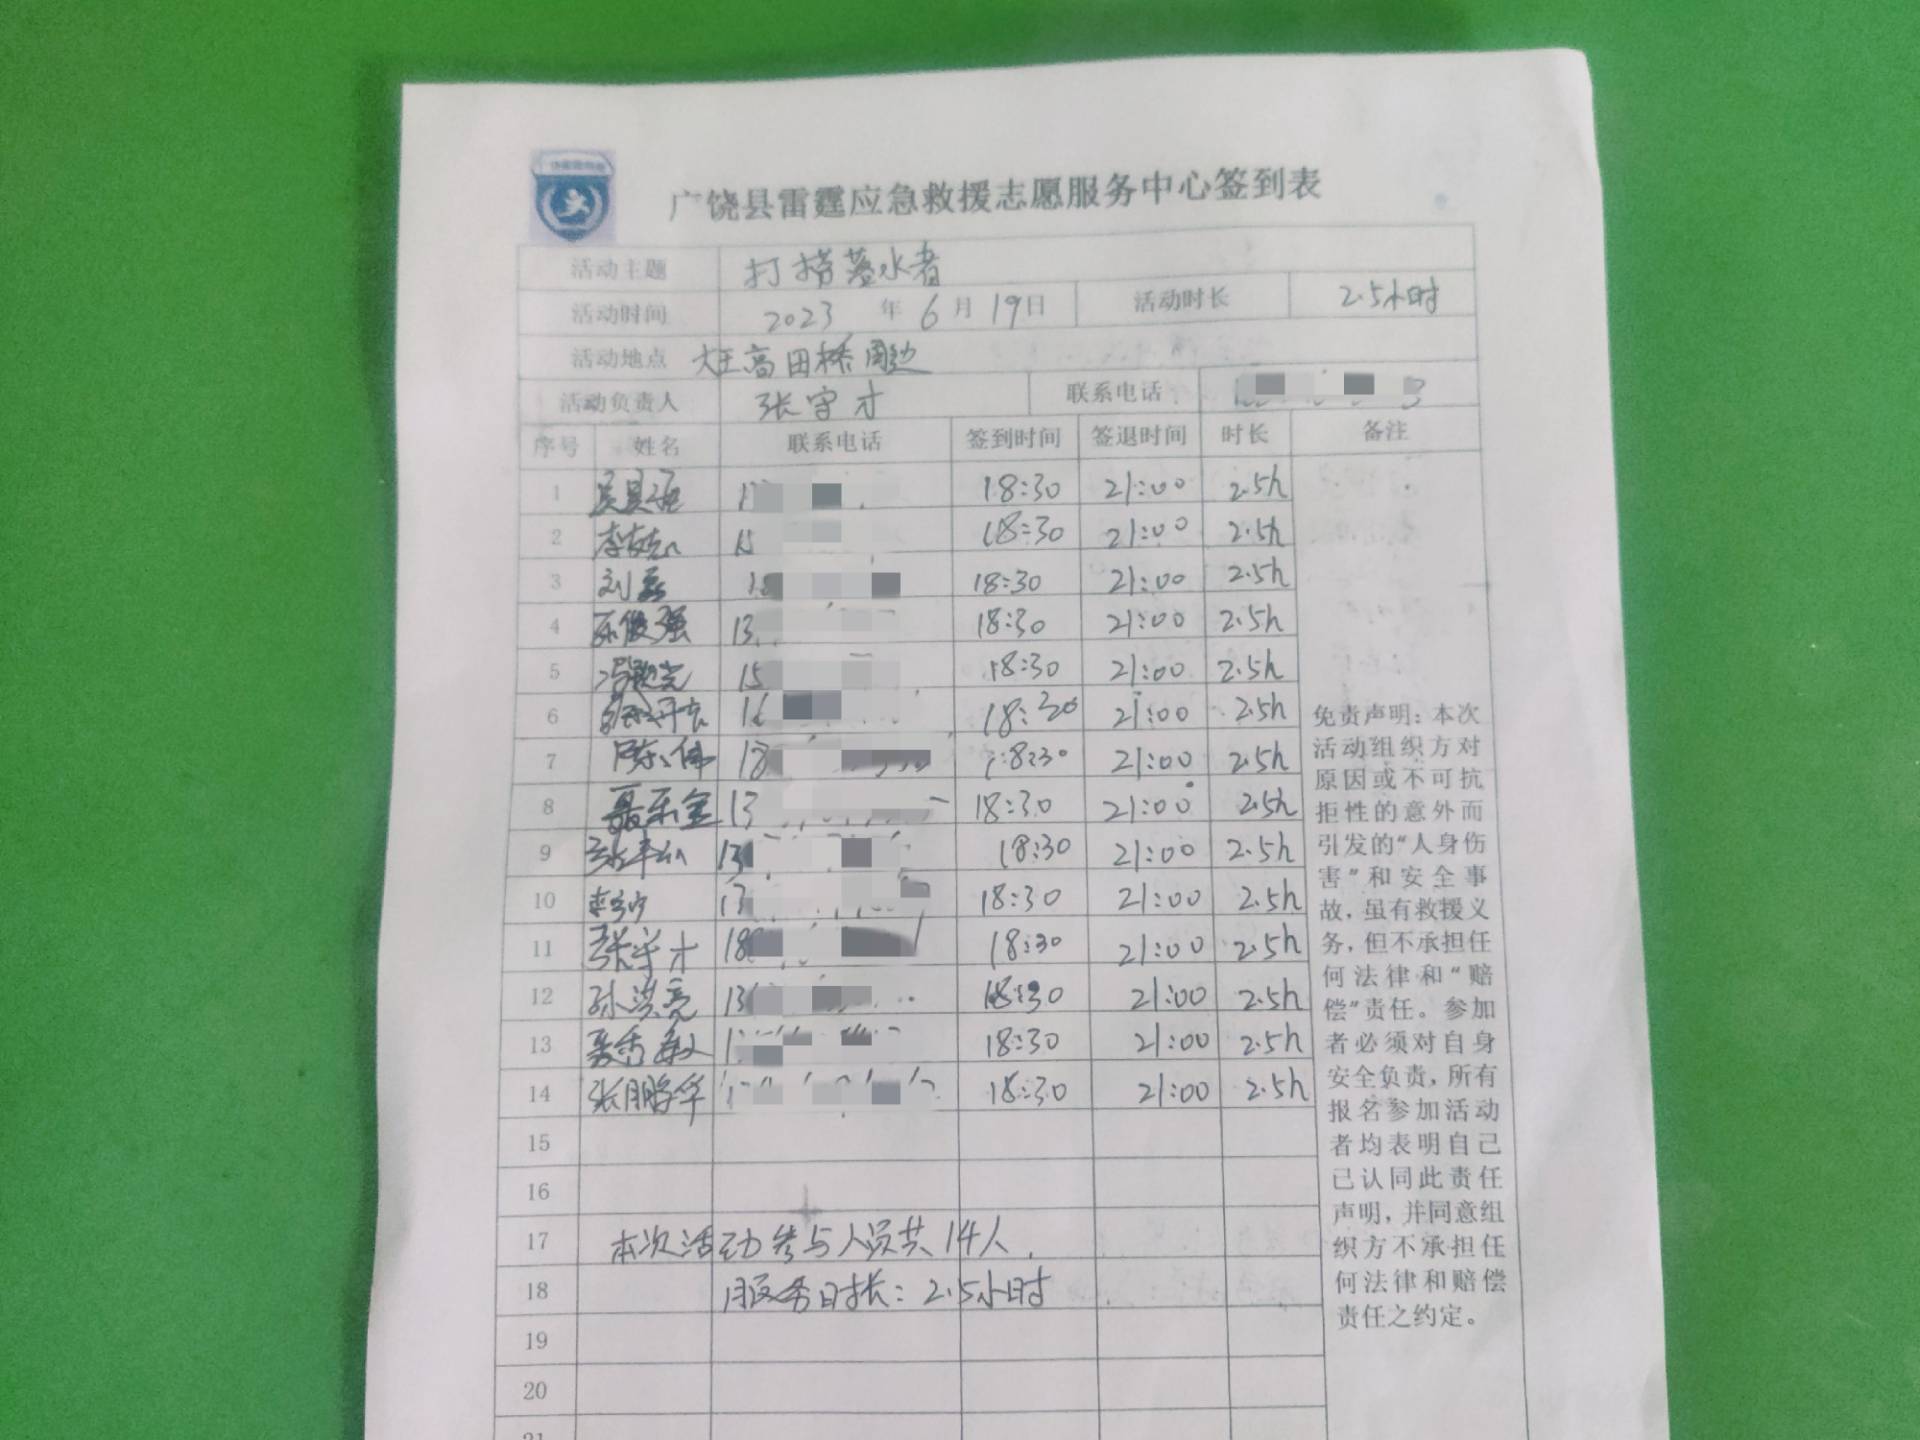 广饶县雷霆应急救援志愿服务中心签到表
活动主题 打捞落水者
活动时间 2023 年 6 月 19 日 活动时长 2.5小时
活动地点 大王高田桥周边
活动负责人 张守才 联系电话
序号 姓名 联系电话 签到时间 签退时间 时长 备注
1 18:30 21:00 2.5h
2 18:30 21:00 2.5h
3 刘磊 18:30 21:00 2.5h
4 13 18:30 21:00 2.5h
5 15 18:30 21:00 2.5h
6 18:30 21:00 2.5h
7 陈伟 18 18:30 21:00 2.5h
8 聂乐金 13 18:30 21:00 2.5h
9 13 18:30 21:00 2.5h
10 18:30 21:00 2.5h
11 张守才 18 18:30 21:00 2.5h
12 孙洪亮 13 18:30 21:00 2.5h
13 18:30 21:00 2.5h
14 张鹏华 18:30 21:00 2.5h
15
16
17 本次活动参与人员共14人.
18 服务时长：2.5小时
19
20
21
免责声明：本次
活动组织方对
原因或不可抗
拒性的意外而
引发的“人身伤
害”和安全事
故，虽有救援义
务，但不承担任
何法律和“赔
偿”责任。参加
者必须对自身
安全负责，所有
报名参加活动
者均表明自己
已认同此责任
声明，并同意组
织方不承担任
何法律和赔偿
责任之约定。